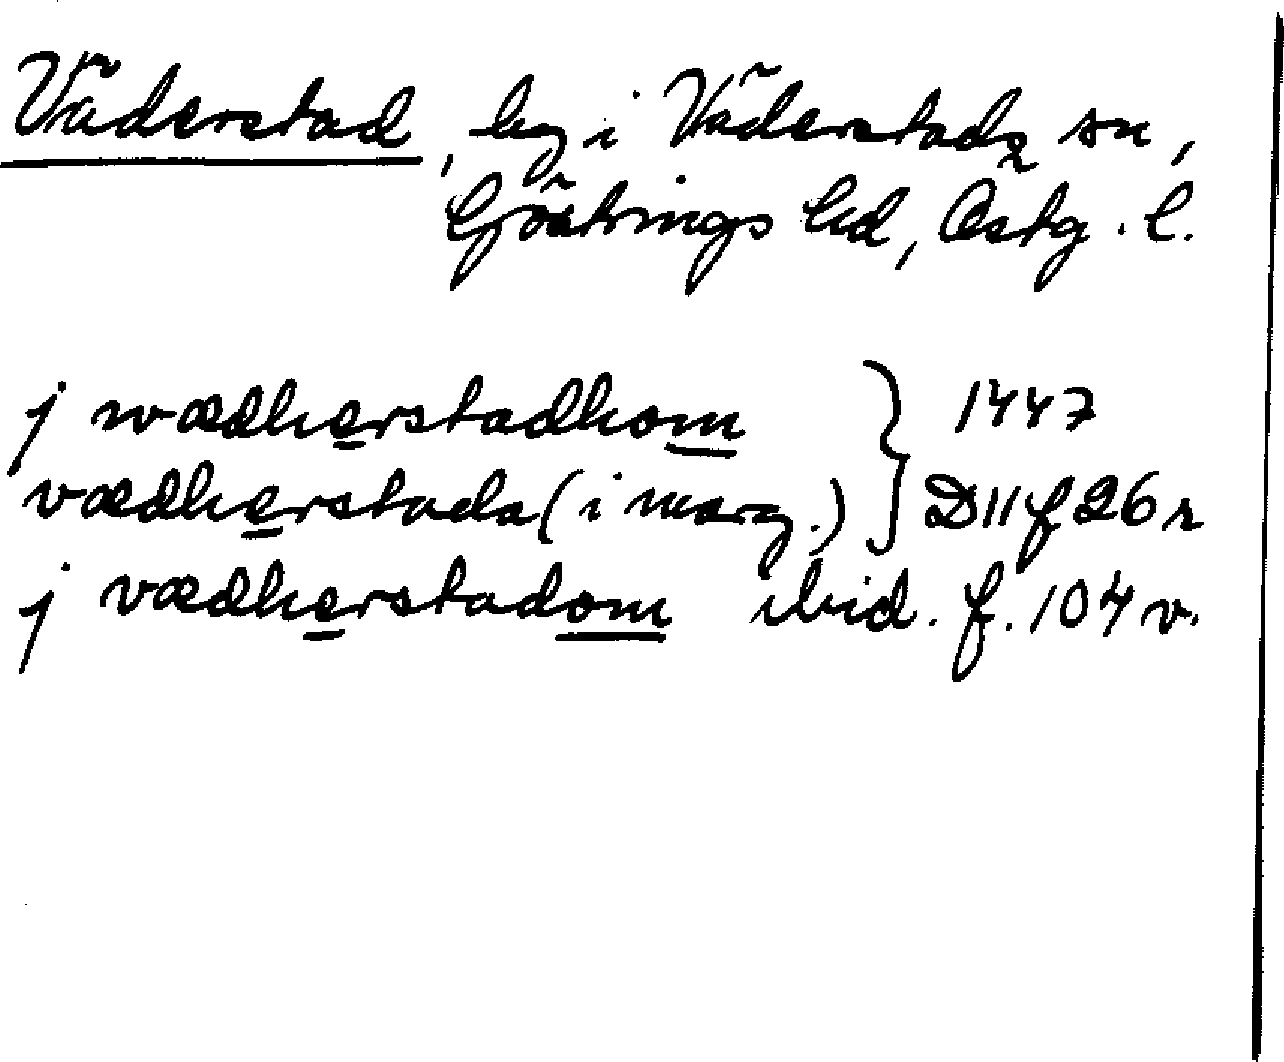 Väderstad, by i Väderstads sn,
Göstrings hd, Östg. l.
j wædherstadhom } 1447
vædherstada (i marg.) } D 11 f 26 r
j vædherstadom ibid. f. 104 v.